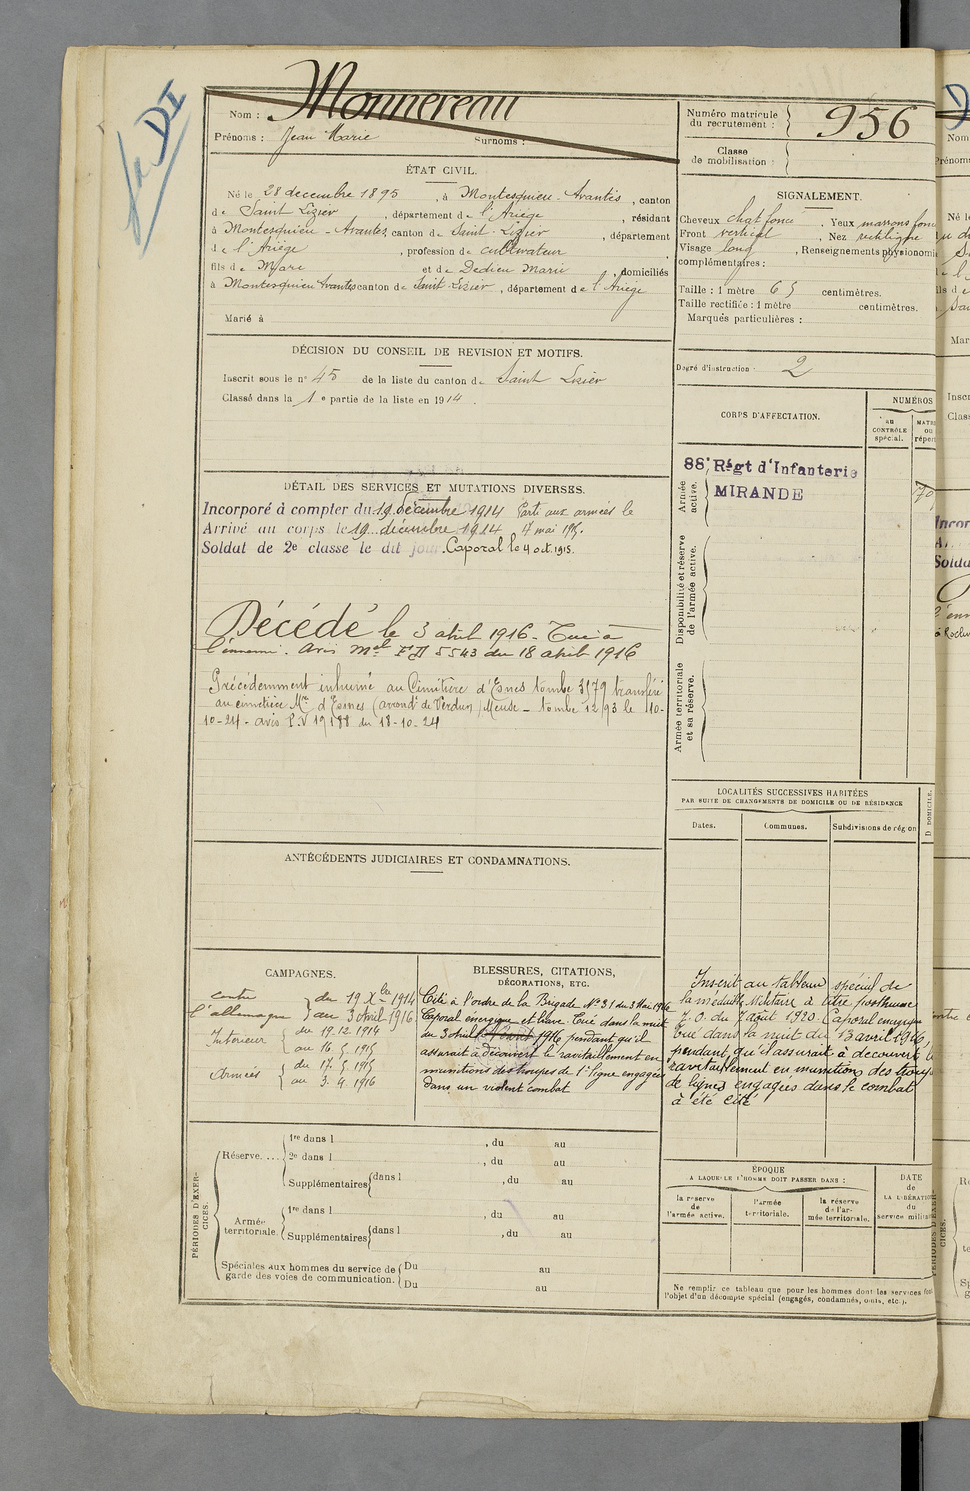 Nom : Monnereau
Prénoms : Jean Marie Surnoms :
ÉTAT CIVIL.
Né le 28 décembre 1895, à Montesquieu-Avantès, canton
de Saint Lizier, département de l'Ariège, résidant
à Montesquieu-Avantès, canton de Saint-Lizier, département
de l'Ariège, profession de cultivateur
fils de Marc et de Dedieu Marie, domiciliés
à Montesquieu Avantès canton de Saint-Lizier, département de l'Ariège
Marié à
DÉCISION DU CONSEIL DE REVISION ET MOTIFS.
Inscrit sous le n° 45 de la liste du canton de Saint Lizier
Classé dans la 1e partie de la liste en 1914.
DÉTAIL DES SERVICES ET MUTATIONS DIVERSES.
Incorporé à compter du 19 décembre 1914 Parti aux armées le
Arrivé au corps le 19 décembre 1914 17 mai 1915.
Soldat de 2e classe le dit jour. Caporal le 4 oct. 1915.
Décédé le 3 avril 1916 - Tué à
l'ennemi. Avis Mel 5543 du 18 avril 1916
Précédemment inhumé au Cimitière d'Esnes tombe 3179 transféré
au cimetière Mre d'Esnes (arrondt de Verdun) Meuse - tombe 1293 le 10-
10-24 - avis P.V 19188 du 18-10-24
ANTÉCÉDENTS JUDICIAIRES ET CONDAMNATIONS.
CAMPAGNES.
contre l'allemagne } du 19 Xbre 1914
au 3 Avril 1916
Intérieur { du 19.12.1914
au 16.5.1915
Armées { du 17.5.1915
au 3.4.1916
BLESSURES, CITATIONS,
DÉCORATIONS, ETC.
Cité à l'ordre de la Brigade N° 31 du 3 Mai 1916
Caporal énergique et brave. Tué dans la nuit
du 3 Avril 1916 pendant qu'il
assurait à découvert le ravitaillement en
munitions des troupes de 1e ligne engagées
dans un violent combat
PÉRIODES D'EXERCICES.
Réserve.... 1re dans l , du au
2e dans l , du au
Supplémentaires dans l , du au
Armée territoriale. 1re dans l , du au
Supplémentaires dans l , du au
Spéciales aux hommes du service de garde des voies de communication. Du au
Du au
Numéro matricule du recrutement : 956
Classe de mobilisation :
SIGNALEMENT.
Cheveux chat foncé, Yeux marrons fonc
Front vertical, Nez rectiligne
Visage long, Renseignements physionomi
complémentaires :
Taille : 1 mètre 65 centimètres.
Taille rectifiée : 1 mètre centimètres.
Marques particulières :
Degré d'instruction : 2
CORPS D'AFFECTATION.
NUMÉROS
au CONTRÔLE spécial.
Armée active.
88e Régt d'Infanterie
MIRANDE
Disponibilité et réserve de l'armée active.
Armée territoriale et sa réserve.
LOCALITÉS SUCCESSIVES HABITÉES
PAR SUITE DE CHANGEMENTS DE DOMICILE OU DE RÉSIDENCE
Dates. Communes. Subdivisions de région
Inscrit au tableau spécial de
la médaille Militaire à titre posthume
J.O. du 7 août 1920. Caporal énergique
tué dans la nuit du 3 avril 1916,
pendant qu'il assurait à découvert le
ravitaillement en munitions des troup
de lignes engagées dans le combat
à été cité
ÉPOQUE
A LAQUELLE L'HOMME DOIT PASSER DANS :
la réserve de l'armée active.
l'armée territoriale.
la réserve de l'armée territoriale.
DATE de LA LIBÉRATION du service milit
Ne remplir ce tableau que pour les hommes dont les services font
l'objet d'un décompte spécial (engagés, condamnés, omis, etc.).